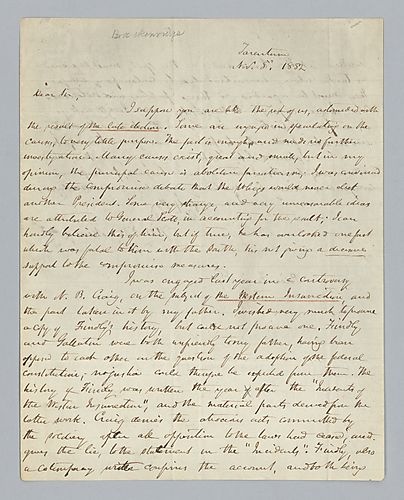 Tarentum
Nov. 8. 1852
Dear Sir,
I suppose you are like the rest of us, astonished with
the result of the late election. Some are engaged in speculating on the
causes, to very little purpose. The fact is enough, and needs no further
investigation. Many causes exist, great and small, but in my
opinion, the principal cause is abolition fanaticism. I was convinced
during the compromise debate that the Whigs would never elect
another President. Some very strange, and very unreasonable ideas
are attributed to General Scott, in accounting for the result; I can
hardly believe this of him, but if true, he has overlooked one fact
which was fatal to him with the South, his not giving a decisive
support to the compromise measures.
I was engaged last year in a controversy
with N. B. Craig, on the subject of the Western Insurrection, and
the part taken in it by my father. I wished very much to procure
a copy of Findley's history, but could not procure one. Findley
and Gallatin were both unfriendly to my father, having been
opposed to each other in the question of the adoption of the federal
constitution; no favour could therefore be expected from them. The
history of Findley was written the year after the "Incidents of
the Western Insurrection", and the material parts derived from the
latter work. Craig denies the atrocious acts committed by
the soldiery after all opposition to the laws had ceased, and
gives the lie, to the statement in the "Incidents". Findley, also
a cotemporary writer confirms the account, and both being